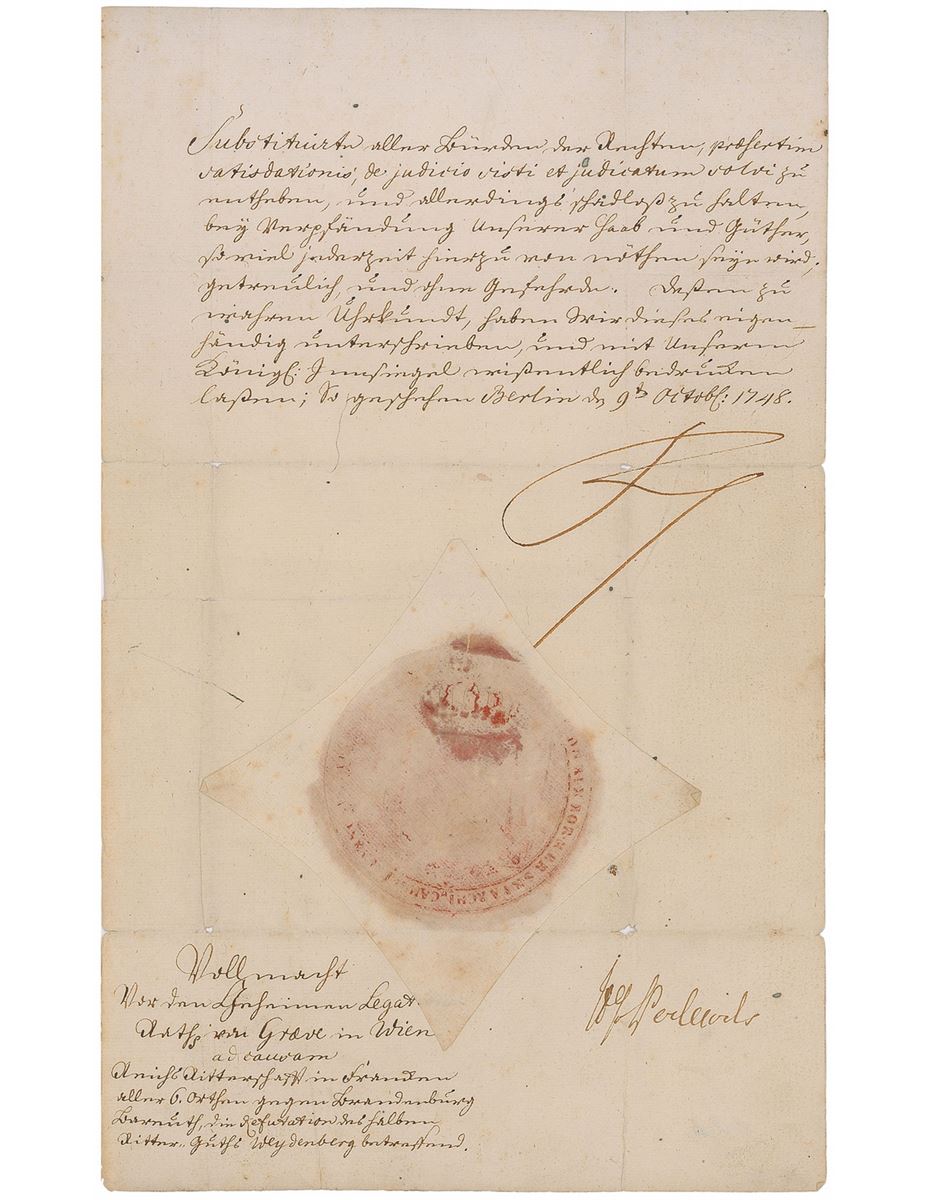 Substituirte aller Bürden der Rechten, præsertim
satisdationis, de judicio sisti et judicatum solvi zu
entheben, und allerdings schadloß zu halten,
bey Verpfändung Unserer Haab und Güther,
so viel jederzeit hierzu von nöthen seyn wird,
getreulich und ohne Gefehrde. Deßen zu
wahren Uhrkundt, haben Wir dieses eigen
händig unterschrieben, und mit Unserm
Königl: Innsiegel wißentlich bedrucken
laßen; So geschehen Berlin d. 9t. Octobl: 1748.
ROM
ARCHI CAM
Vollmacht
Vor den Geheimen Legat:
Rath von Græve in Wien
ad causam
Reichs Ritterschafft in Francken
aller 6. Orthen gegen Brandenburg
Bareuth, die Refutation des halben
Ritter-Guths Weydenberg betreffend.
Podewils